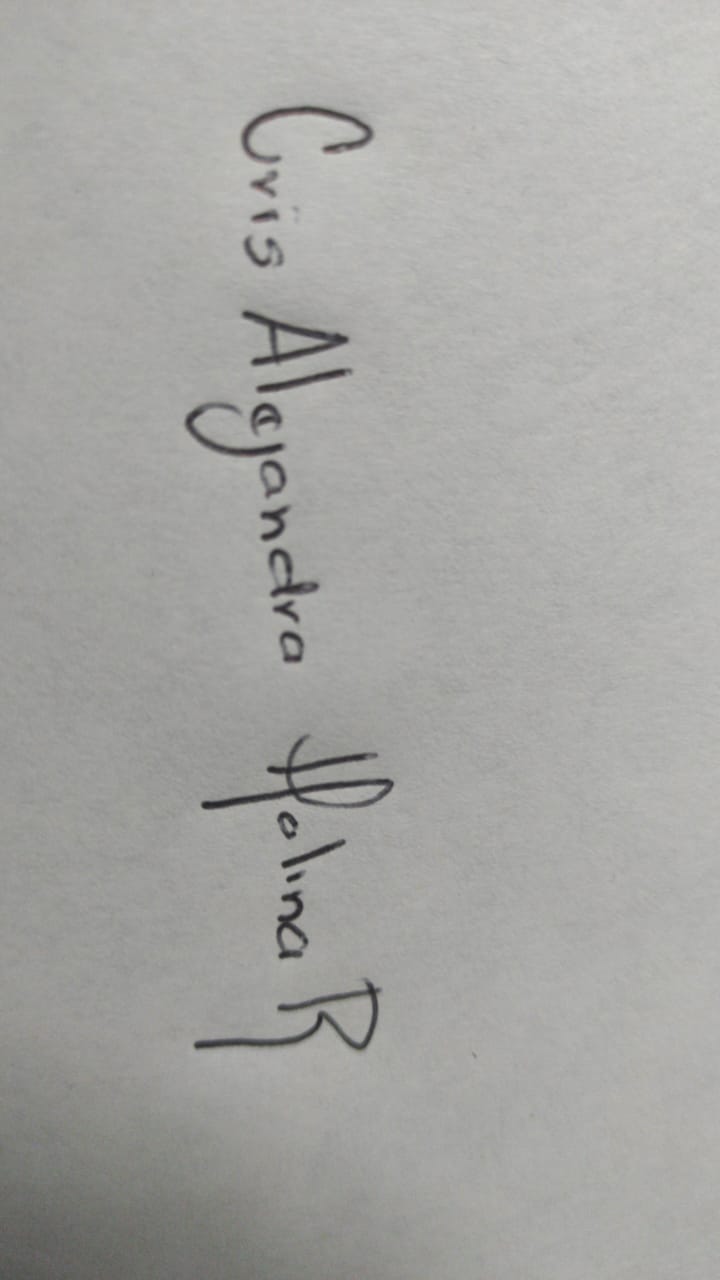 Cris Alejandra Molina R